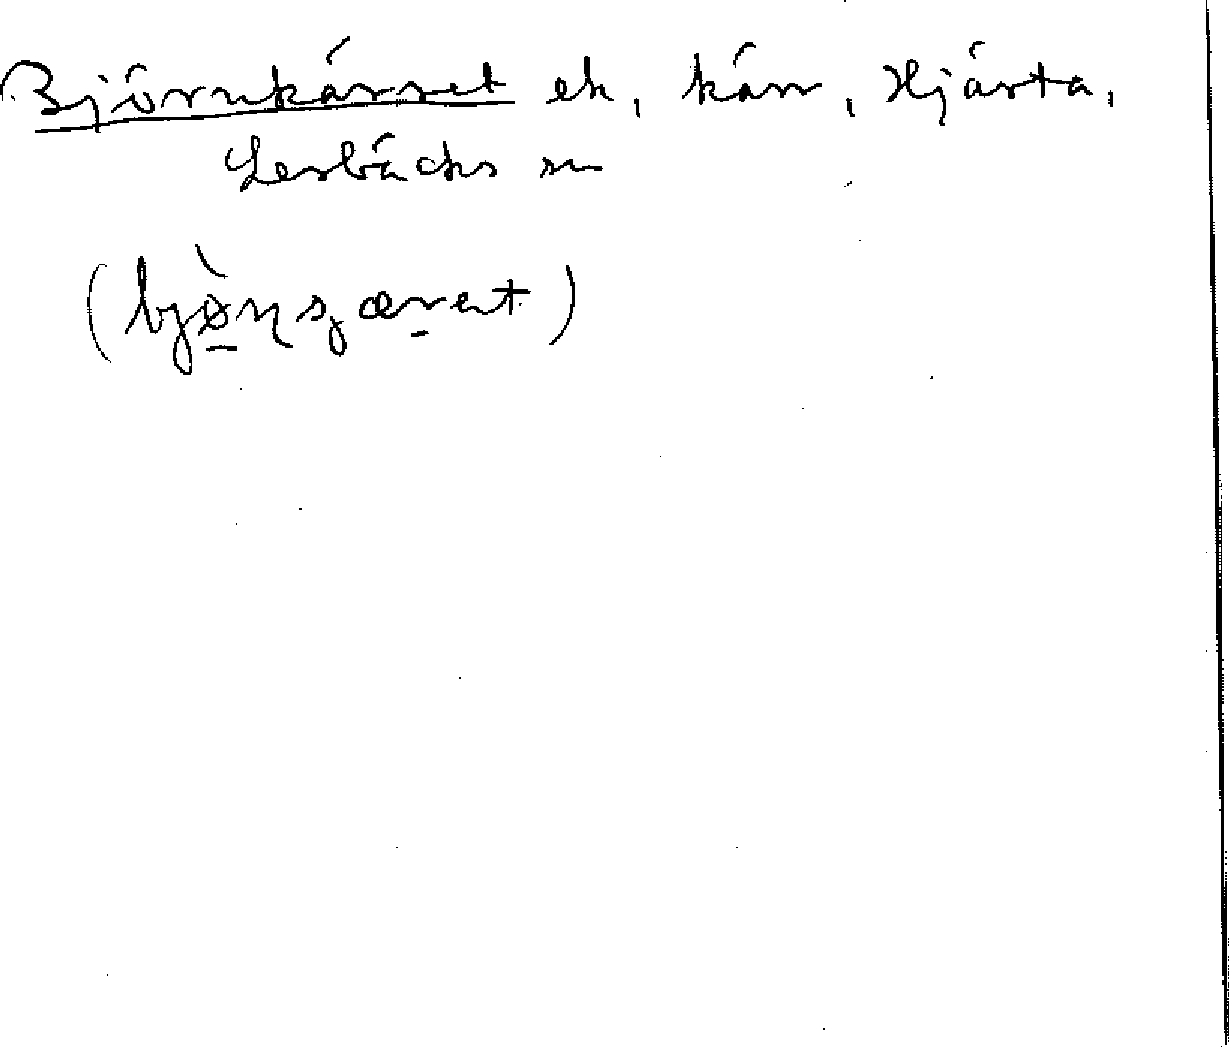 Björnkärret ek, kärr, Hjärta,
Lerbäcks sn
(bjønʂærət)